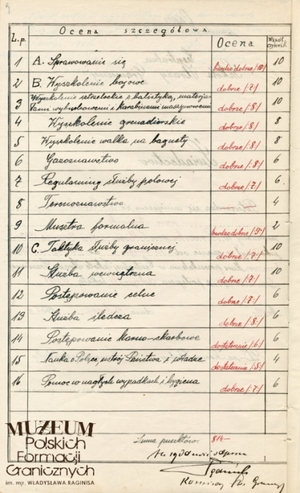 Ocena szczegółowa
L.p. Ocena Współczynnik
1 A. Sprawowanie się bardzo dobre /10/ 10
2 B. Wyszkolenie bojowe dobre /7/ 10
3 Wyszkolenie strzeleckie z balistyką, materja-
łami wybuchowemi i karabinem maszynowem dobre /8/ 10
4 Wyszkolenie grenadierskie dobre /8/ 8
5 Wyszkolenie walka na bagnety dobre /8/ 8
6 Gazoznawstwo dobre /8/ 6
7 Regulaminy służby polowej dobre /7/ 6
8 Terenoznawstwo 4
9 Musztra formalna bardzo dobre /9/ 2
10 C. Taktyka służby granicznej dobre /7/ 10
11 Służba wewnętrzna dobre /7/ 10
12 Postępowanie celne dobre /7/ 6
13 Służba śledcza dobre /8/ 6
14 Postępowanie karno-skarbowe dostatecznie /6/ 6
15 Nauka o Polsce, ustrój Państwa i władze dostatecznie /5/ 4
16 Pomoc w nagłych wypadkach i hygiena dobre /7/ 6
Suma punktów: 814
Za zgodność odpisu
MUZEUM
Polskich
Formacji
Granicznych
im. mjr. WŁADYSŁAWA RAGINISA